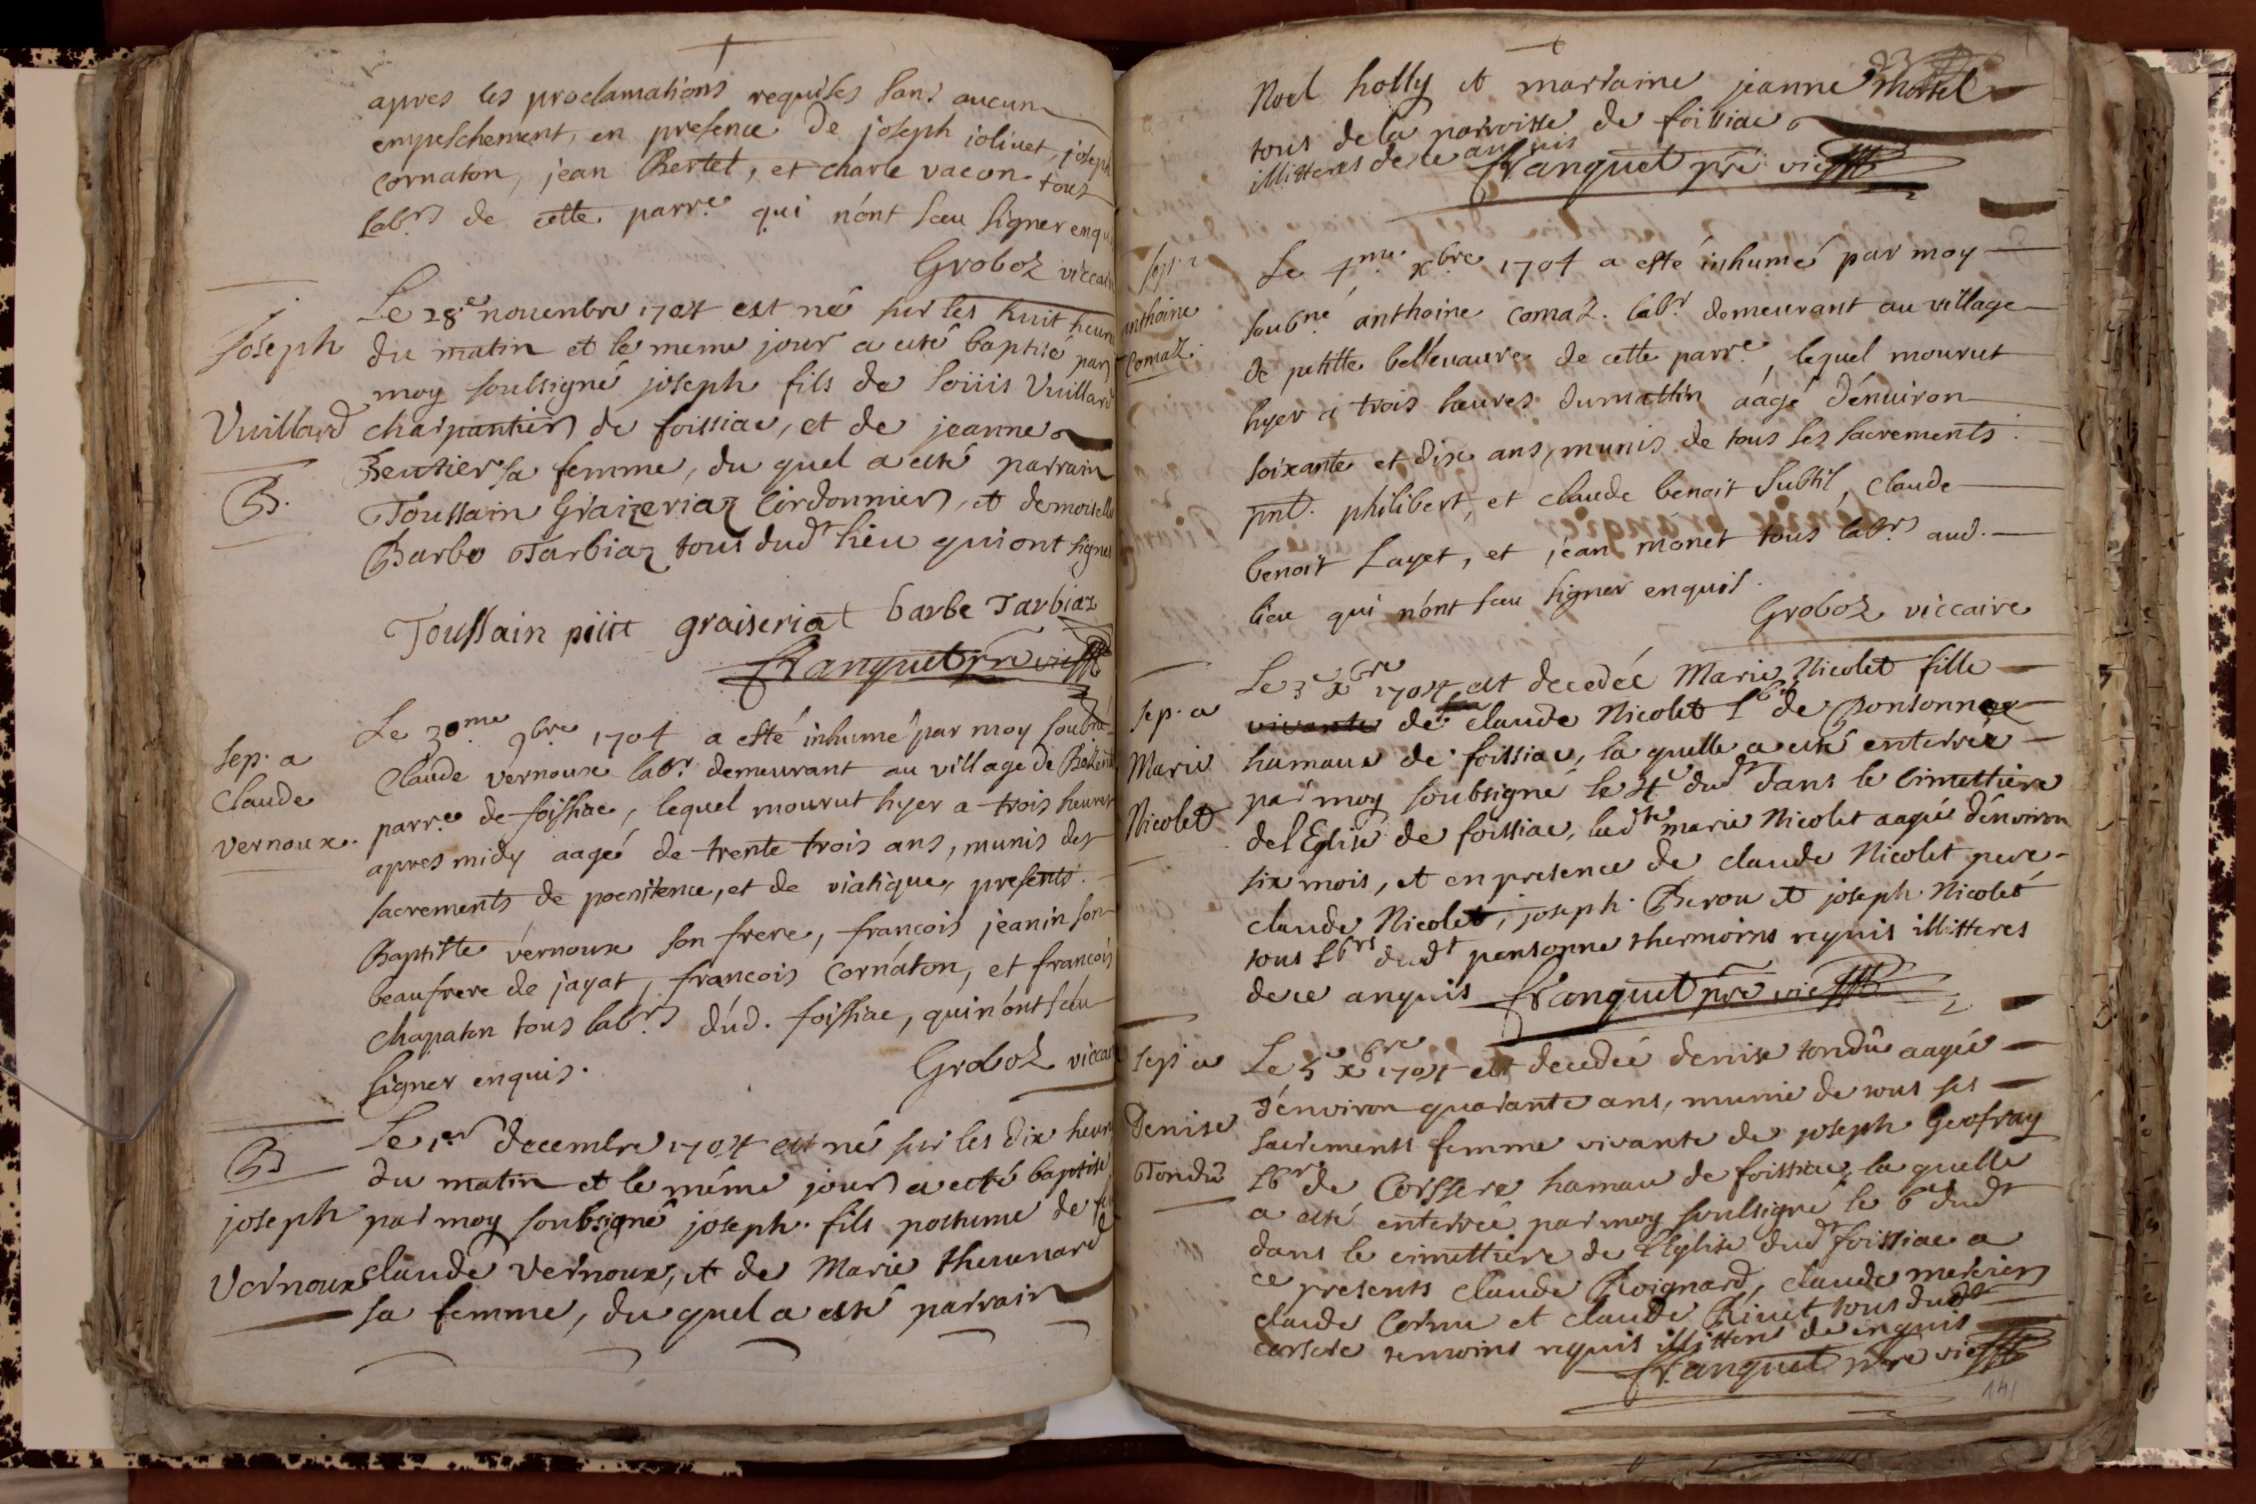 apres les proclamations requises sans aucun
empeschement, en presence de joseph joliuet, joseph
Cornaton, jean Bertet, et charle vacon tous
labrs de cette parre qui n'ont sceu signer enquis
Groboz viccaire
Joseph
Vuillard
B.
Le 28e nouenbre 1704 est né sur les huit heures
du matin et le meme jour a esté baptisé par
moy soubsigné joseph fils de Loüis Vuillard
charpantier de foissiac, et de jeanne
sa femme, du quel a esté parrain
Toussain Graizeriaz Cordonnier, et demoiselle
Barbe Tarbiaz tous dudt lieu qui ont signes
Toussain graiseriat barbe Tarbiaz
franquet pre vic
Sep. a
Claude
vernoux.
Le 30me 9bre 1704 a esté inhumé par moy soubné
Claude vernoux labr demeurant au village de
parre de foissiac, lequel mourut hyer a trois heures
apres midy aagé de trente trois ans, munis des
sacrements de poenitence, et de viatique, presents
Baptiste vernoux son frere, francois jeanin son
beaufrere de jayat, francois cornaton, et francois
chapaton tous labrs dud. foissiac, qui n'ont sceu
signer enquis.
Groboz viccaire
B
joseph
Vernoux
Le 1er decembre 1704 est né sur les dix heures
du matin et le méme jour a esté baptisé
par moy soubsigné joseph fils postume de
claude Vernoux, et de Marie theuenard
sa femme, du quel a esté parrain
Noel holly et marraine jeanne
tous de la parroisse de foissiac
illitteres de ce anquis franquet pre vic
Sep. a
anthoine
Comaz.
Le 4me xbre 1704 a esté inhumé par moy
soubné anthoine comaz. labr demeurant au village
de petitte belleuaure de cette parre, lequel mourut
hyer a trois heures du mattin aagé d'enuiron
soixante et dix ans, munis de tous les sacrements.
pnt. philibert, et claude benoit subtil, claude
benoit Layet, et jean monet tous labrs aud.
lieu qui n'ont sceu signer enquis.
Groboz viccaire
Sep. a
Marie
Nicolet
Le 3e xbre 1704 est decedée Marie Nicolet fille
vivante de claude Nicolet Lbr de Ponsonnex
hamaux de foissiac, la quelle a esté enterrée
par moy soubsigné le 4e dudt dans le Cimettiere
de l'Eglise de foissiac, ladte marie Nicolet aagée d'environ
six mois, et en presence de claude Nicolet pere
claude Nicolet, joseph Berou et joseph Nicolet
tous Lbrs dudt ponsonne thermoins requis illitteres
de ce anquis franquet pre vic
Sep. a
Denise
Tondu
Le 5e xbre 1704 est decedée denise tondu aagée
d'environ quarante ans, munie de tous ses
sacrements femme vivante de joseph Geofray
Lbr de Corssere hamau de foissiac, la quelle
a esté enterrée par moy soubsigné le 6e dudt
dans le cimettiere de l'Eglise dudt foissiac a
ce presents claude Poignard, claude mercier
claude Cornu et claude Riuet tous dudt
corsere temoins requis illitteres de enquis
franquet pre vic
141